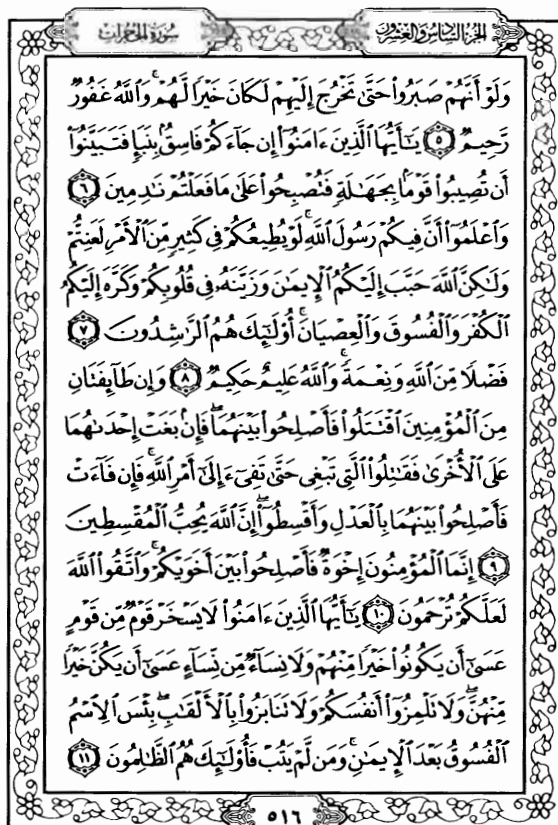 سُورَةُ الحُجُرَاتِ
الجزء السادس والعشرون
وَلَوْ أَنَّهُمْ صَبَرُوا۟ حَتَّىٰ تَخْرُجَ إِلَيْهِمْ لَكَانَ خَيْرًا لَّهُمْ ۚ وَٱللَّهُ غَفُورٌ
رَّحِيمٌ ٥ يَـٰٓأَيُّهَا ٱلَّذِينَ ءَامَنُوٓا۟ إِن جَآءَكُمْ فَاسِقٌۢ بِنَبَإٍ فَتَبَيَّنُوٓا۟
أَن تُصِيبُوا۟ قَوْمًۢا بِجَهَـٰلَةٍ فَتُصْبِحُوا۟ عَلَىٰ مَا فَعَلْتُمْ نَـٰدِمِينَ ٦
وَٱعْلَمُوٓا۟ أَنَّ فِيكُمْ رَسُولَ ٱللَّهِ ۚ لَوْ يُطِيعُكُمْ فِى كَثِيرٍ مِّنَ ٱلْأَمْرِ لَعَنِتُّمْ
وَلَـٰكِنَّ ٱللَّهَ حَبَّبَ إِلَيْكُمُ ٱلْإِيمَـٰنَ وَزَيَّنَهُۥ فِى قُلُوبِكُمْ وَكَرَّهَ إِلَيْكُمُ
ٱلْكُفْرَ وَٱلْفُسُوقَ وَٱلْعِصْيَانَ ۚ أُو۟لَـٰٓئِكَ هُمُ ٱلرَّٰشِدُونَ ٧
فَضْلًا مِّنَ ٱللَّهِ وَنِعْمَةً ۚ وَٱللَّهُ عَلِيمٌ حَكِيمٌ ٨ وَإِن طَآئِفَتَانِ
مِنَ ٱلْمُؤْمِنِينَ ٱقْتَتَلُوا۟ فَأَصْلِحُوا۟ بَيْنَهُمَا ۖ فَإِنۢ بَغَتْ إِحْدَىٰهُمَا
عَلَى ٱلْأُخْرَىٰ فَقَـٰتِلُوا۟ ٱلَّتِى تَبْغِى حَتَّىٰ تَفِىٓءَ إِلَىٰٓ أَمْرِ ٱللَّهِ ۚ فَإِن فَآءَتْ
فَأَصْلِحُوا۟ بَيْنَهُمَا بِٱلْعَدْلِ وَأَقْسِطُوٓا۟ ۖ إِنَّ ٱللَّهَ يُحِبُّ ٱلْمُقْسِطِينَ
٩ إِنَّمَا ٱلْمُؤْمِنُونَ إِخْوَةٌ فَأَصْلِحُوا۟ بَيْنَ أَخَوَيْكُمْ ۚ وَٱتَّقُوا۟ ٱللَّهَ
لَعَلَّكُمْ تُرْحَمُونَ ١٠ يَـٰٓأَيُّهَا ٱلَّذِينَ ءَامَنُوا۟ لَا يَسْخَرْ قَوْمٌ مِّن قَوْمٍ
عَسَىٰٓ أَن يَكُونُوا۟ خَيْرًا مِّنْهُمْ وَلَا نِسَآءٌ مِّن نِّسَآءٍ عَسَىٰٓ أَن يَكُنَّ خَيْرًا
مِّنْهُنَّ ۖ وَلَا تَلْمِزُوٓا۟ أَنفُسَكُمْ وَلَا تَنَابَزُوا۟ بِٱلْأَلْقَـٰبِ ۖ بِئْسَ ٱلِٱسْمُ
ٱلْفُسُوقُ بَعْدَ ٱلْإِيمَـٰنِ ۚ وَمَن لَّمْ يَتُبْ فَأُو۟لَـٰٓئِكَ هُمُ ٱلظَّـٰلِمُونَ ١١
٥١٦